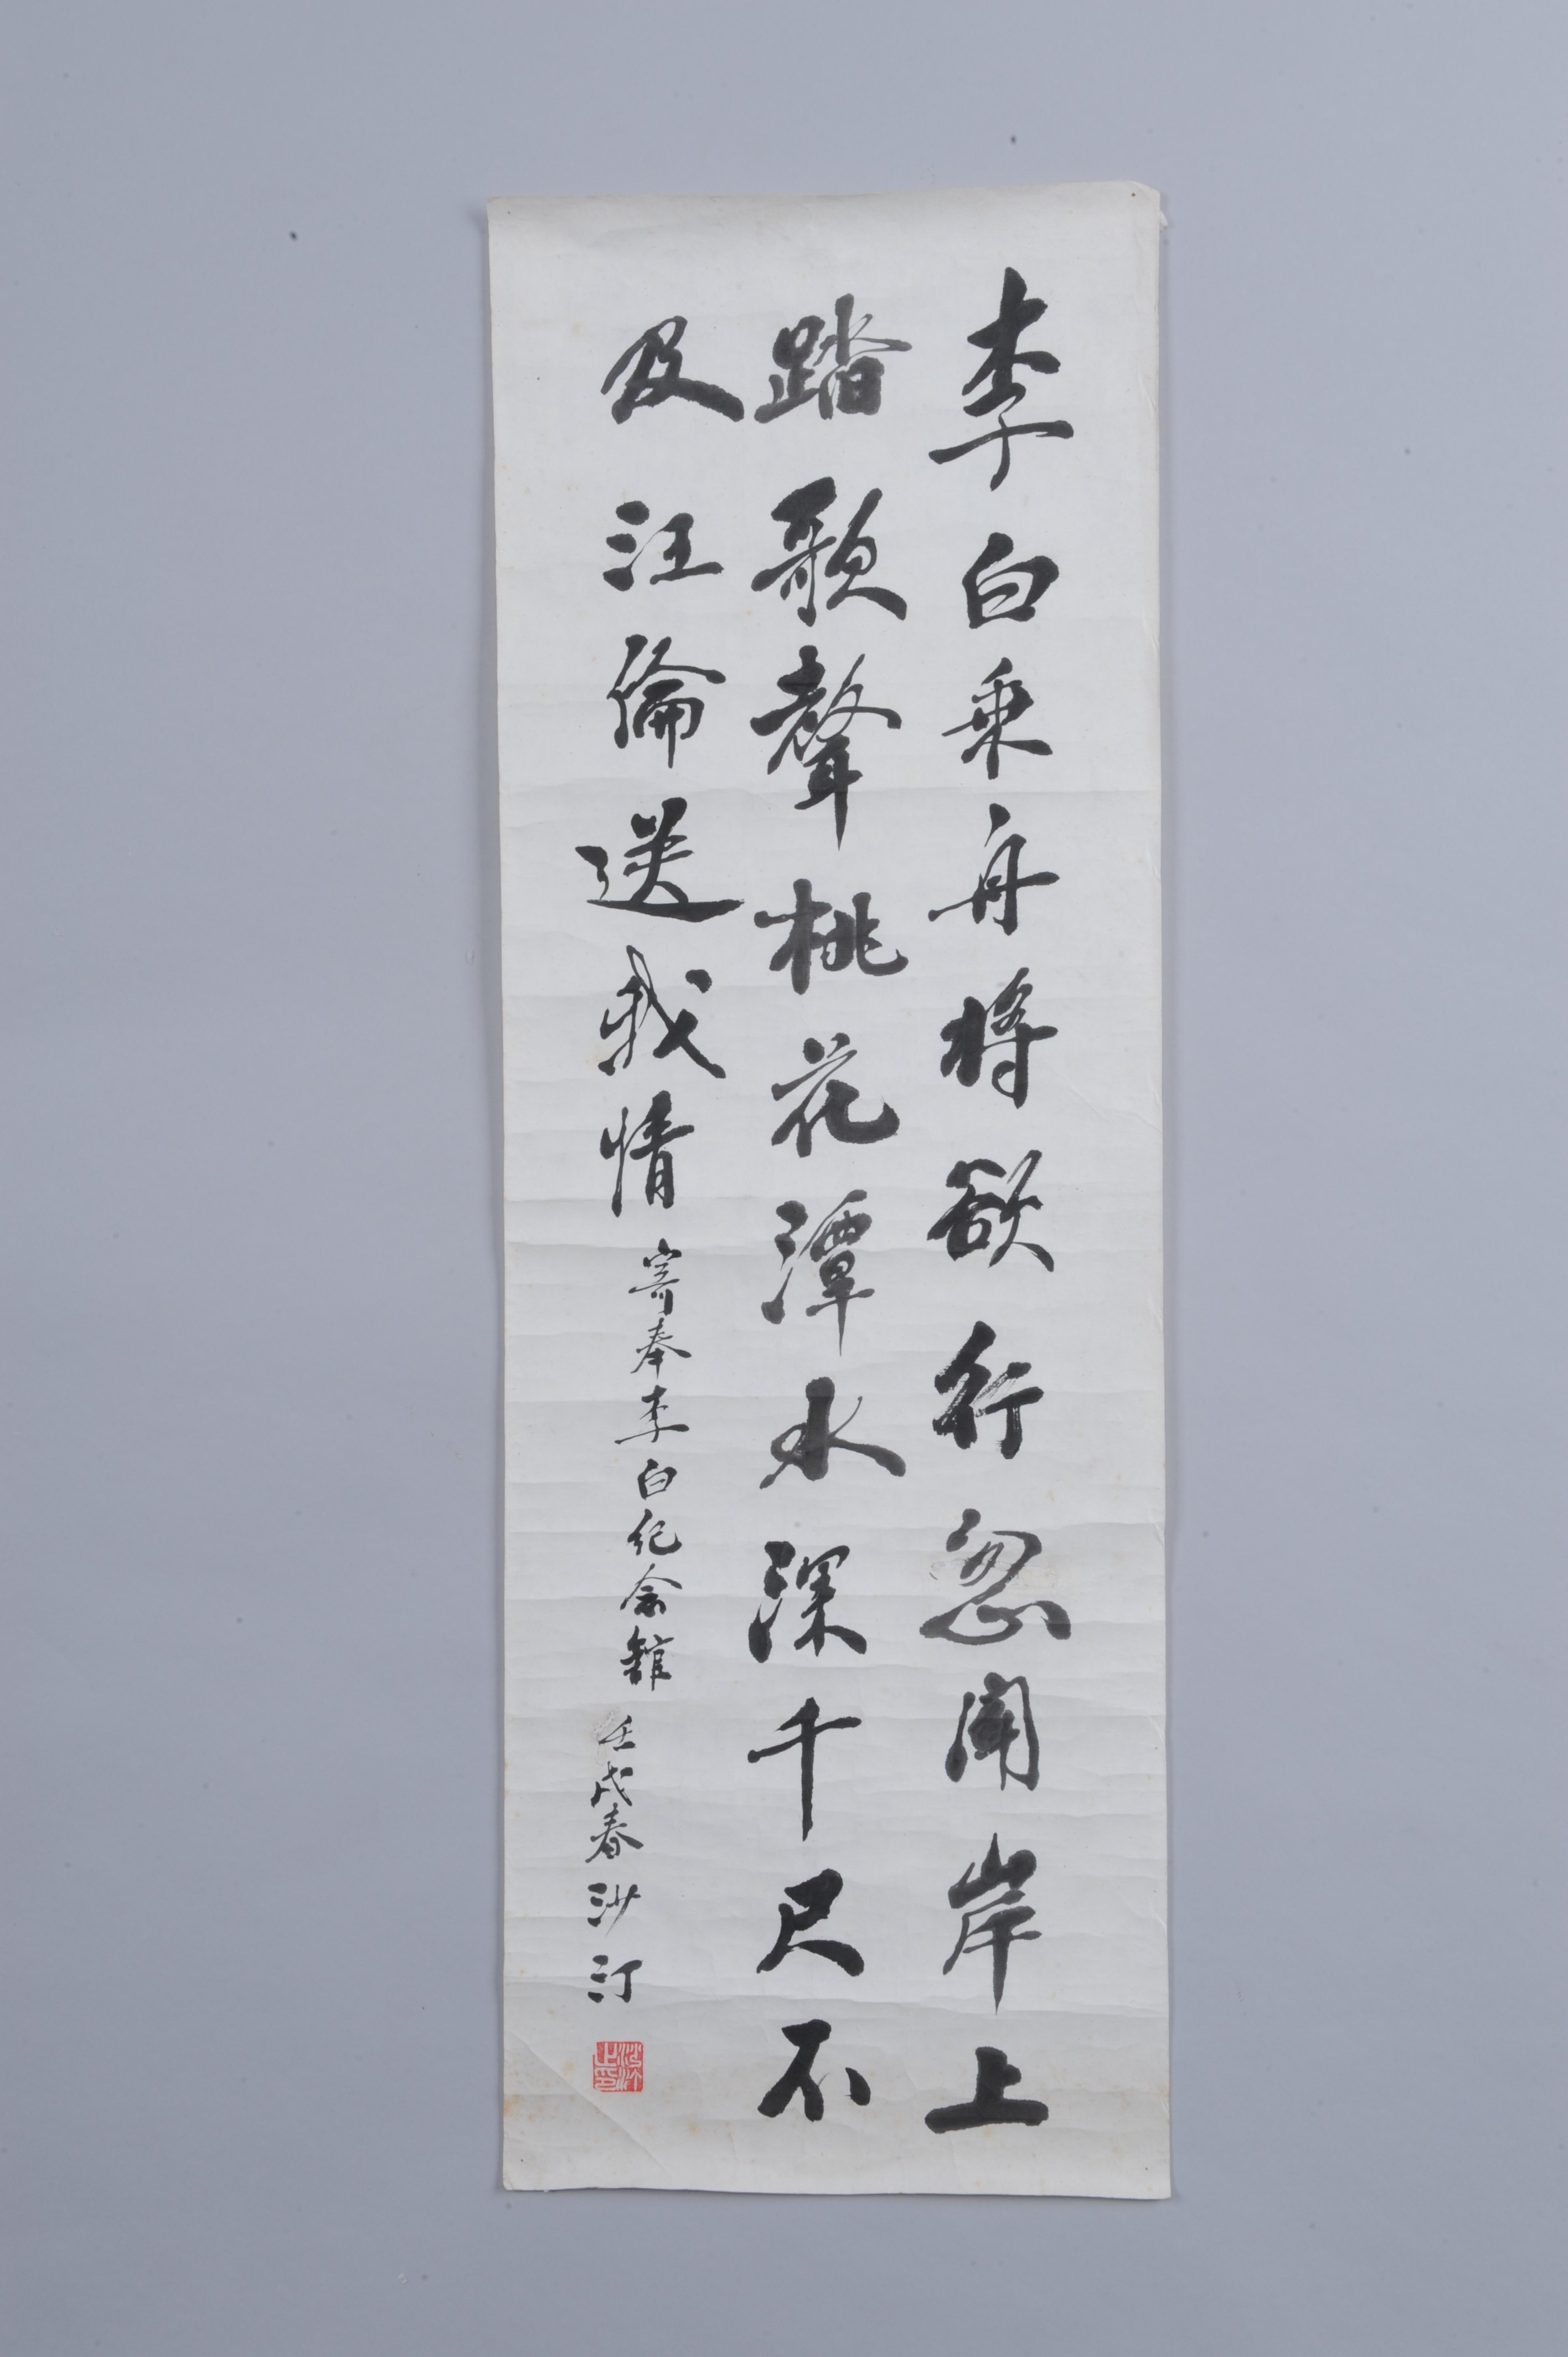 李白乘舟將欲行忽聞岸上
踏歌聲桃花潭水深千尺不
及汪倫送我情
寄奉李白纪念館
壬戌春沙汀
沙汀之印